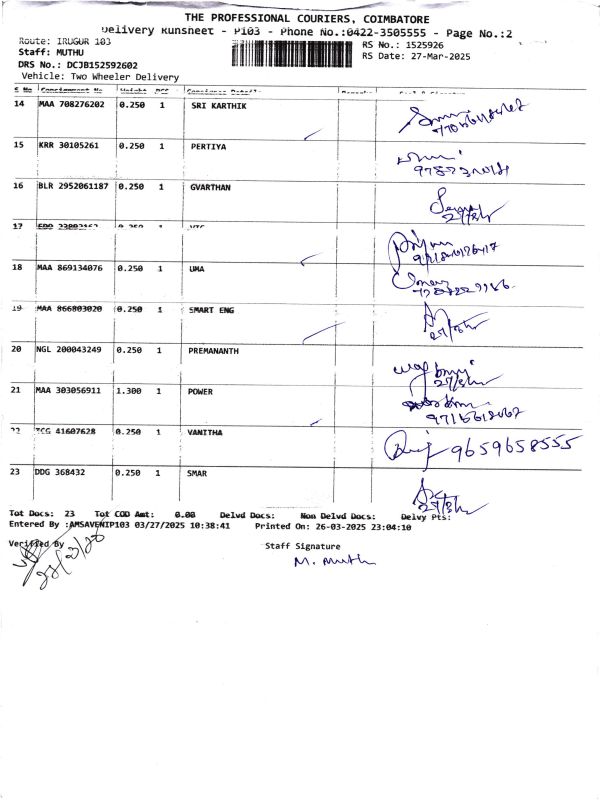 THE PROFESSIONAL COURIERS, COIMBATORE
Delivery Runsheet - P103 - Phone No.:0422-3505555 - Page No.:2
Route: IRUGUR 103
RS No.: 1525926
Staff: MUTHU
RS Date: 27-Mar-2025
DRS No.: DCJB152592602
Vehicle: Two Wheeler Delivery
S No Consignment No Weight PCS Consignee Details Remarks
14 MAA 708276202 0.250 1 SRI KARTHIK
15 KRR 30105261 0.250 1 PERTIYA
16 BLR 2952061187 0.250 1 GVARTHAN
27/3/
17 0.250 1
18 MAA 869134076 0.250 1 UMA
19 MAA 866803020 0.250 1 SMART ENG
27/3/
20 NGL 200043249 0.250 1 PREMANANTH
27/3/
21 MAA 303056911 1.300 1 POWER
22 TCG 41607628 0.250 1 VANITHA
9659658555
23 DDG 368432 0.250 1 SMAR
27/3/
Tot Docs: 23 Tot COD Amt: 0.00 Delvd Docs: Non Delvd Docs: Delvy Pts:
Entered By :AMSAVENIP103 03/27/2025 10:38:41 Printed On: 26-03-2025 23:04:10
Verified By
Staff Signature
M. Muthu